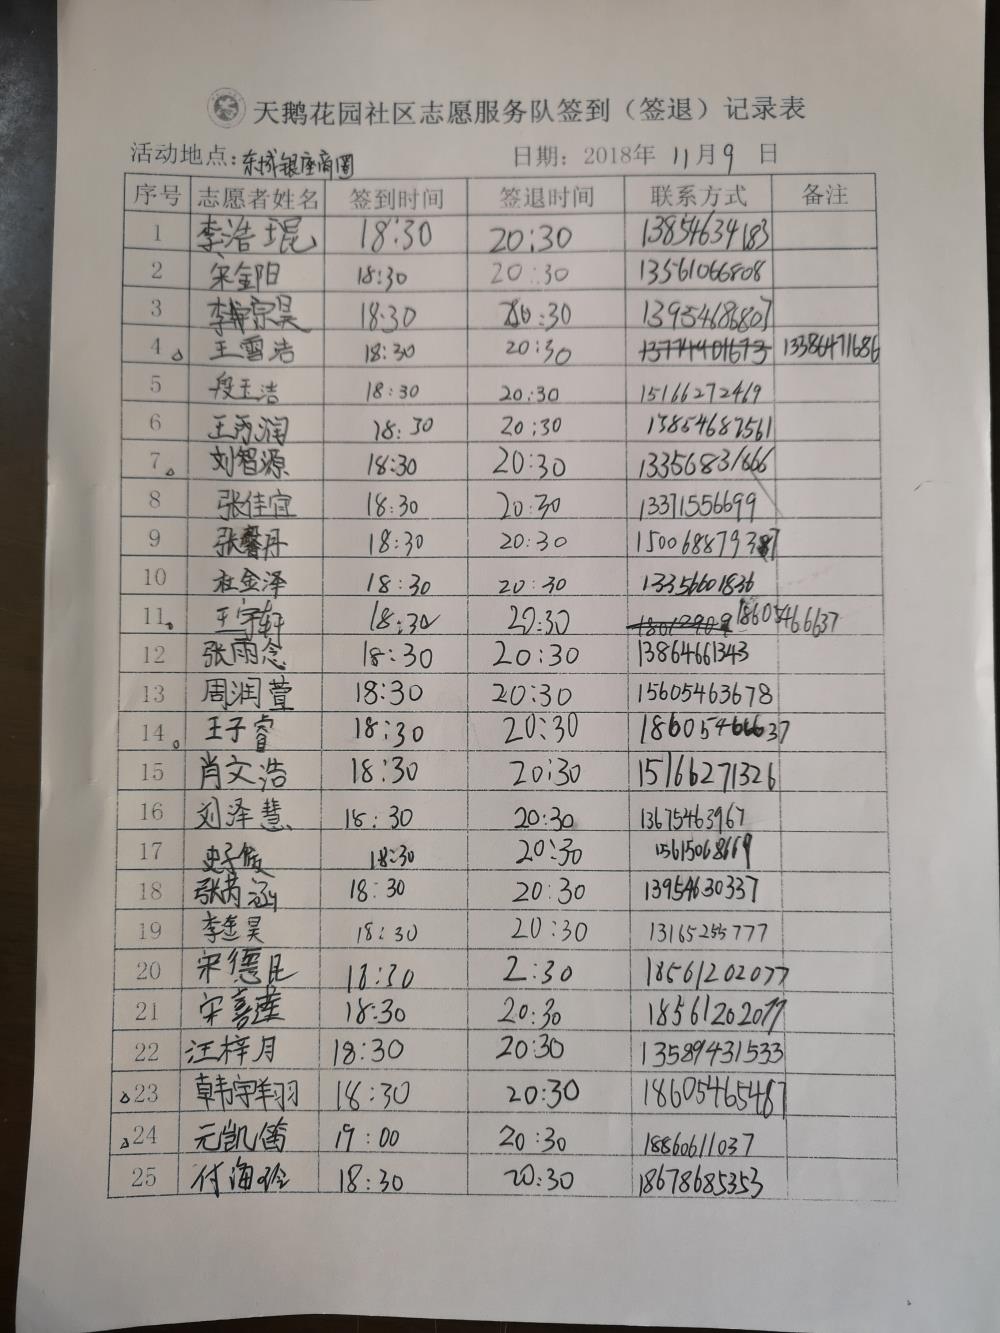 天鹅花园社区志愿服务队签到（签退）记录表
活动地点：东城银座商圈 日期：2018年 11月9 日
序号 志愿者姓名 签到时间 签退时间 联系方式 备注
1 李浩琨 18:30 20:30 13854634183
2 宋金阳 18:30 20:30 13561066808
3 李宗昊 18:30 20:30 13954686807
4 王雪浩 18:30 20:30 13386471686
5 段玉洁 18:30 20:30 15166272469
6 王丙润 18:30 20:30 13854687561
7 刘智源 18:30 20:30 13356831666
8 张佳宜 18:30 20:30 13371556699
9 张馨丹 18:30 20:30 15006887937
10 杜金泽 18:30 20:30 13356601836
11 王宇轩 18:30 20:30 18605466637
12 张雨念 18:30 20:30 13864661343
13 周润萱 18:30 20:30 15605463678
14 王子睿 18:30 20:30 18605466637
15 肖文浩 18:30 20:30 15166271326
16 刘泽慧 18:30 20:30 13675463967
17 18:30 20:30 15615068669
18 张芮涵 18:30 20:30 13954630337
19 李奎昊 18:30 20:30 13165255777
20 宋德昆 18:30 2:30 18561202077
21 宋喜莲 18:30 20:30 18561202077
22 汪梓月 18:30 20:30 13589431533
23 韩宇翔 18:30 20:30 18605465487
24 元凯笛 19:00 20:30 18860611037
25 付海玲 18:30 20:30 18678685353